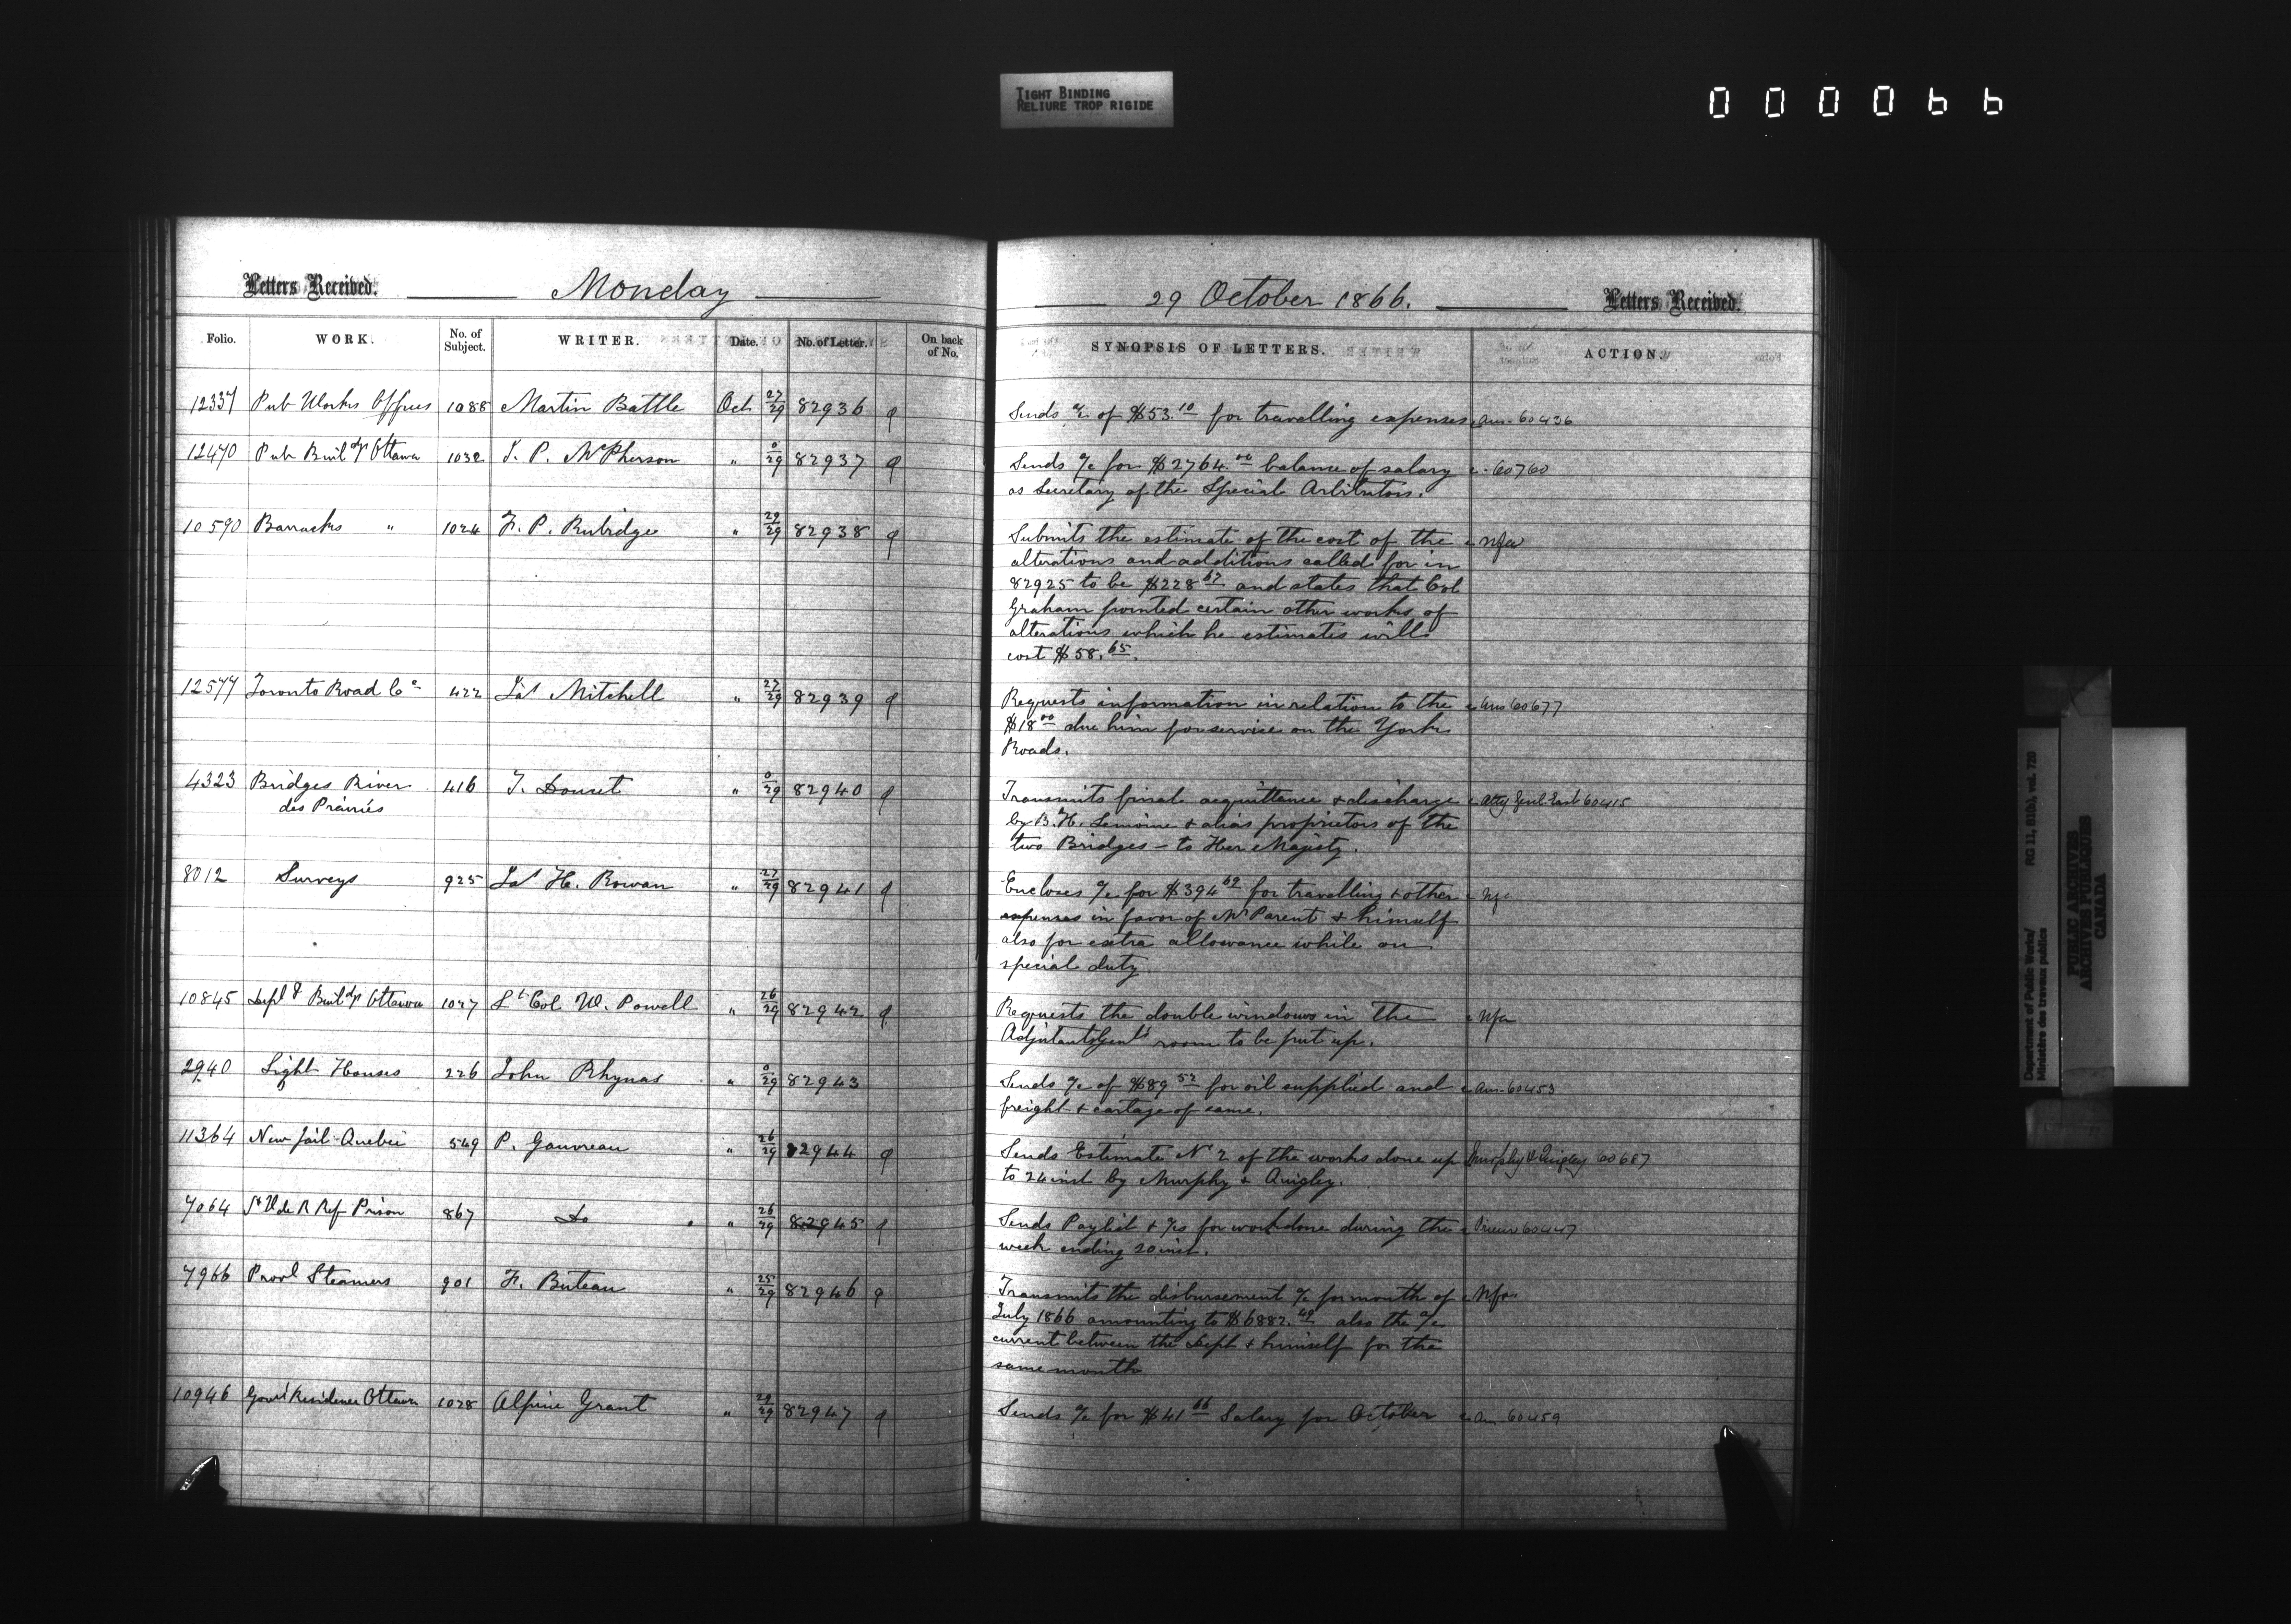 TIGHT BINDING
RELIURE TROP RIGIDE
000066
Letters Received. Monday
29 October 1866. Letters Received.
Folio. WORK. No. of Subject. WRITER. Date. No. of Letter. On back of No.
SYNOPSIS OF LETTERS. ACTION.
12337 Pub Works Offices 1088 Martin Battle Oct 27/29 82936
Sends a/c of $53.10 for travelling expenses Ans. 60436
12470 Pub Buildgs Ottawa 1032 J. P. McPherson " 0/29 82937
Sends a/c for $2764.00 balance of salary 60760
as Secretary of the Special Arbitrators.
10590 Barracks " 1024 F. P. Rubidge " 29/29 82938
Submits the estimate of the cost of the Nfa
alterations and additions called for in
82925 to be $228 67 and states that Col
Graham pointed certain other works of
alterations which he estimates will
cost $58.65.
12577 Toronto Road Co 422 Jas Mitchell " 27/29 82939
Requests information in relation to the Ans 60677
$18 00 due him for service on the York
Roads.
4323 Bridges River 416 T. Doucet " 0/29 82940
des Prairies
Transmits final acquittance & discharge Atty Genl East 60415
by B. H. Lemoine & alias proprietors of the
two Bridges – to Her Majesty.
8012 Surveys 925 Jas H. Rowan " 27/29 82941
Encloses a/c for $394 69 for travelling & other Nfa
expenses in favor of Mr Parent & himself
also for extra allowance while on
special duty
10845 Deptl Buildgs Ottawa 1027 Lt Col W. Powell " 26/29 82942
Requests the double windows in the Nfa
Adjutant Genl's room to be put up.
2940 Light Houses 226 John Rhynas " 0/29 82943
Sends a/c of $89 52 for oil supplied and Ans. 60453
freight & cartage of same.
11364 New Jail Quebec 549 P. Gauvreau " 26/29 82944
Sends Estimate No 2 of the works done up Murphy & Quigley 60687
to 24 inst by Murphy & Quigley.
7064 St V de P Ref Prison 867 Do " 26/29 82945
Sends Paylist & a/cs for work done during the 60447
week ending 20 inst.
7966 Provl Steamers 901 F. Buteau " 25/29 82946
Transmits the disbursement a/c for month of Nfa
July 1866 amounting to $6882.49 also the a/c
current between the Dept & himself for the
same month
10946 Govt Residence Ottawa 1028 Alpine Grant " 29/29 82947
Sends a/c for $41 66 Salary for October Ans. 60459
Department of Public Works/ RG 11, B1(b), vol. 720
Ministère des travaux publics
PUBLIC ARCHIVES
ARCHIVES PUBLIQUES
CANADA